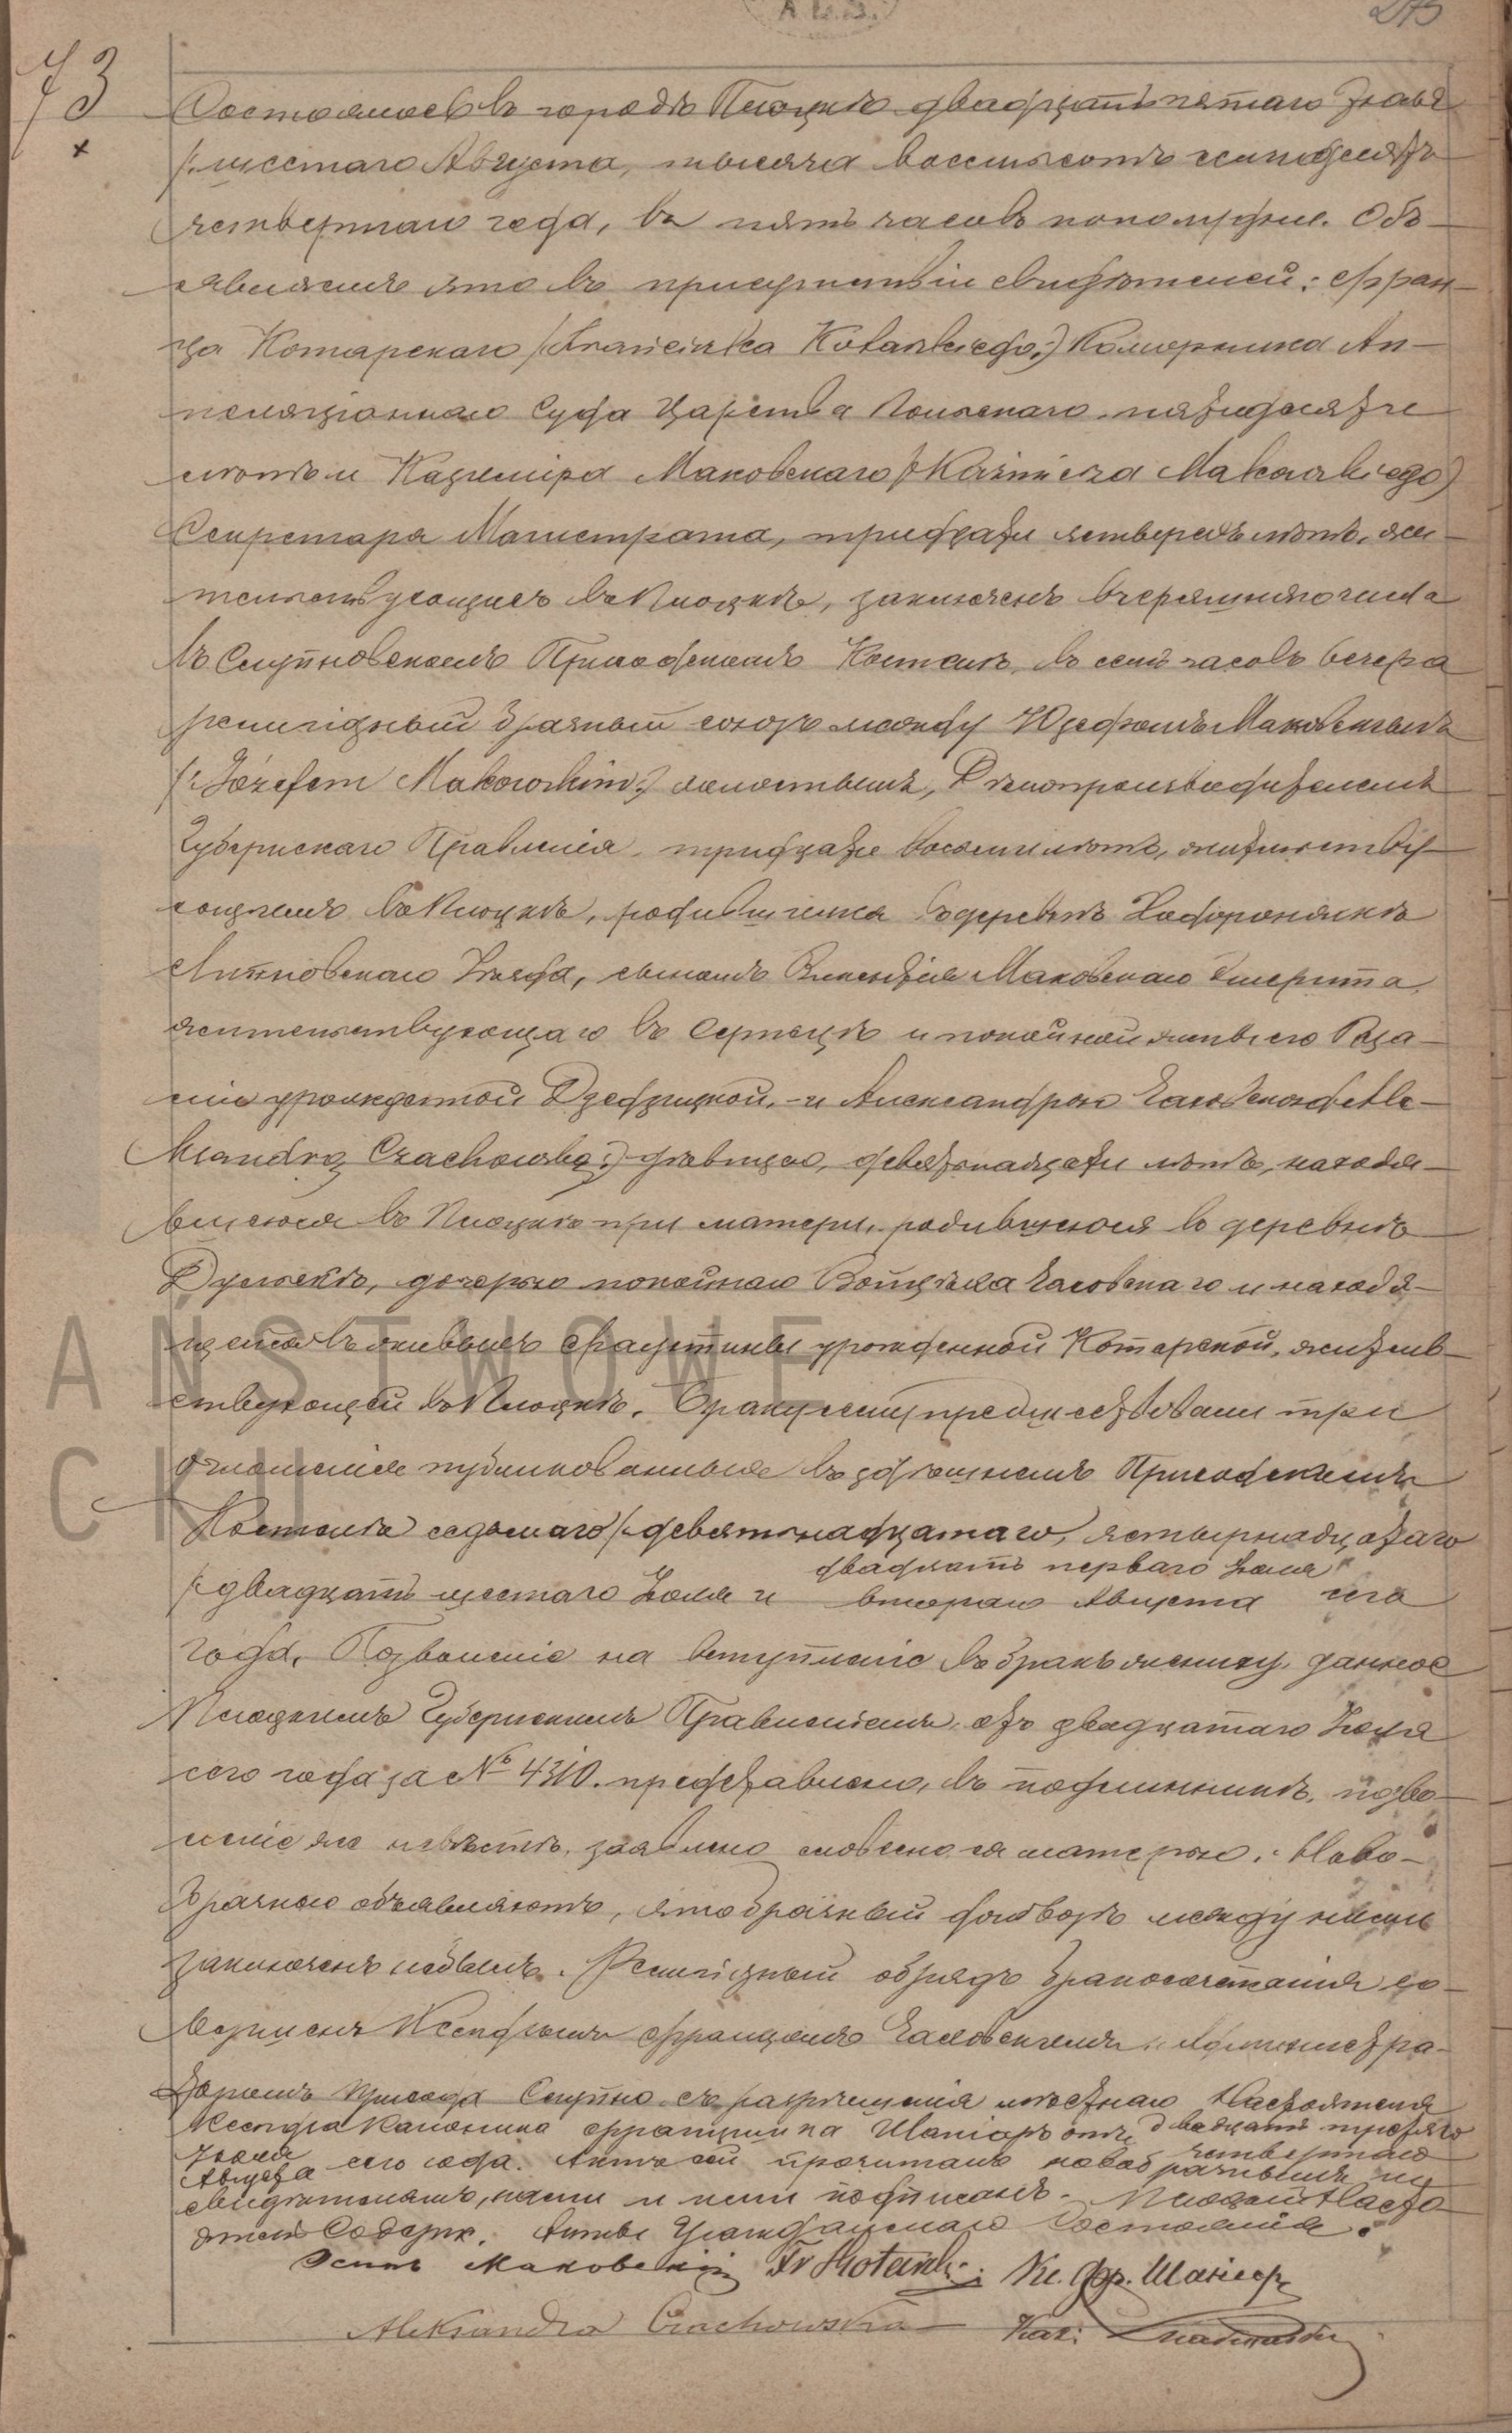 73
Состоялось въ городѣ Плоцкѣ двадцать пятаго Іюля
/: шестаго Августа, тысяча восемьсотъ семьдесятъ
четвертаго года, въ пять часовъ пополудни. Объ-
являемъ что въ присутствіи свидѣтелей: Фран-
ца Котарскаго /:Franciszka Kotarskiego:/ Коморника Ап-
пеляціоннаго Суда Царства Польскаго, пятидесяти
лѣтъ и Казимира Маковскаго /:Kazimierza Makowskiego)
Секретаря Магистрата, тридцати четырехъ лѣтъ, жи-
тельствующихъ въ Плоцкѣ, заключенъ вчерашняго числа
въ Слупновскомъ Приходскомъ Костелѣ, въ семь часовъ вечера
религіозный брачный союзъ между Юзефомъ Маковскимъ
/:Józefem Makowskim:/ холостымъ, Дѣлопроизводителемъ
Губернскаго Правленія, тридцати восьми лѣтъ, жительству-
ющимъ въ Плоцкѣ, родившимся въ деревнѣ
Липновскаго Уѣзда, сыномъ Викентія Маковскаго Эмерита,
жительствующаго въ Серпецѣ и покойной жены его Роза-
ліи урожденной и Александрою Чаховскою /:Ale-
ksandrą Czachowską:/ дѣвицею, девятнадцати лѣтъ, находя-
щеюся въ Плоцкѣ при матери, родившеюся въ деревнѣ
дочерью покойнаго Войцѣха Чаховскаго и находя-
щейся въ живыхъ Фаустины урожденной Котарской, житель-
ствующей въ Плоцкѣ. Браку сему предшествовали три
оглашенія публикованныя въ здѣшнемъ Приходскомъ
Костелѣ седьмаго /: девятнадцатаго, четырнадцатаго
двадцать перваго Іюля
/: двадцать шестаго Іюля и втораго Августа сего
года. Позволеніе на вступленіе въ бракъ жениху, данное
Плоцкимъ Губернскимъ Правленіемъ, отъ двадцатаго Іюля
сего года за № 4310. представлено, въ подлинникѣ, позво-
леніе же невѣстѣ, заявлено словесно ея матерью. Ново-
брачные объявляютъ, что брачный договоръ между ними
заключенъ небылъ. Религіозный обрядъ бракосочетанія со-
вершенъ Ксендзомъ Францомъ Чаховскимъ Администра-
торомъ Прихода Слупно съ разрѣшенія мѣстнаго Настоятеля
Ксендза Каноника Францишка отъ двадцать третьяго
Іюля четвертаго
Августа сего года. Актъ сей прочитанъ новобрачнымъ и
свидѣтелямъ, нами и ими подписанъ. Плоцкій Настоя-
тель Содерж. Акты Гражданскаго Состоянія.
Осипъ Маковскій Fr Kotarski Кс. Фр.
Aleksandra Czachowska Kaz: Makowski
ANSTWOWE
CKU